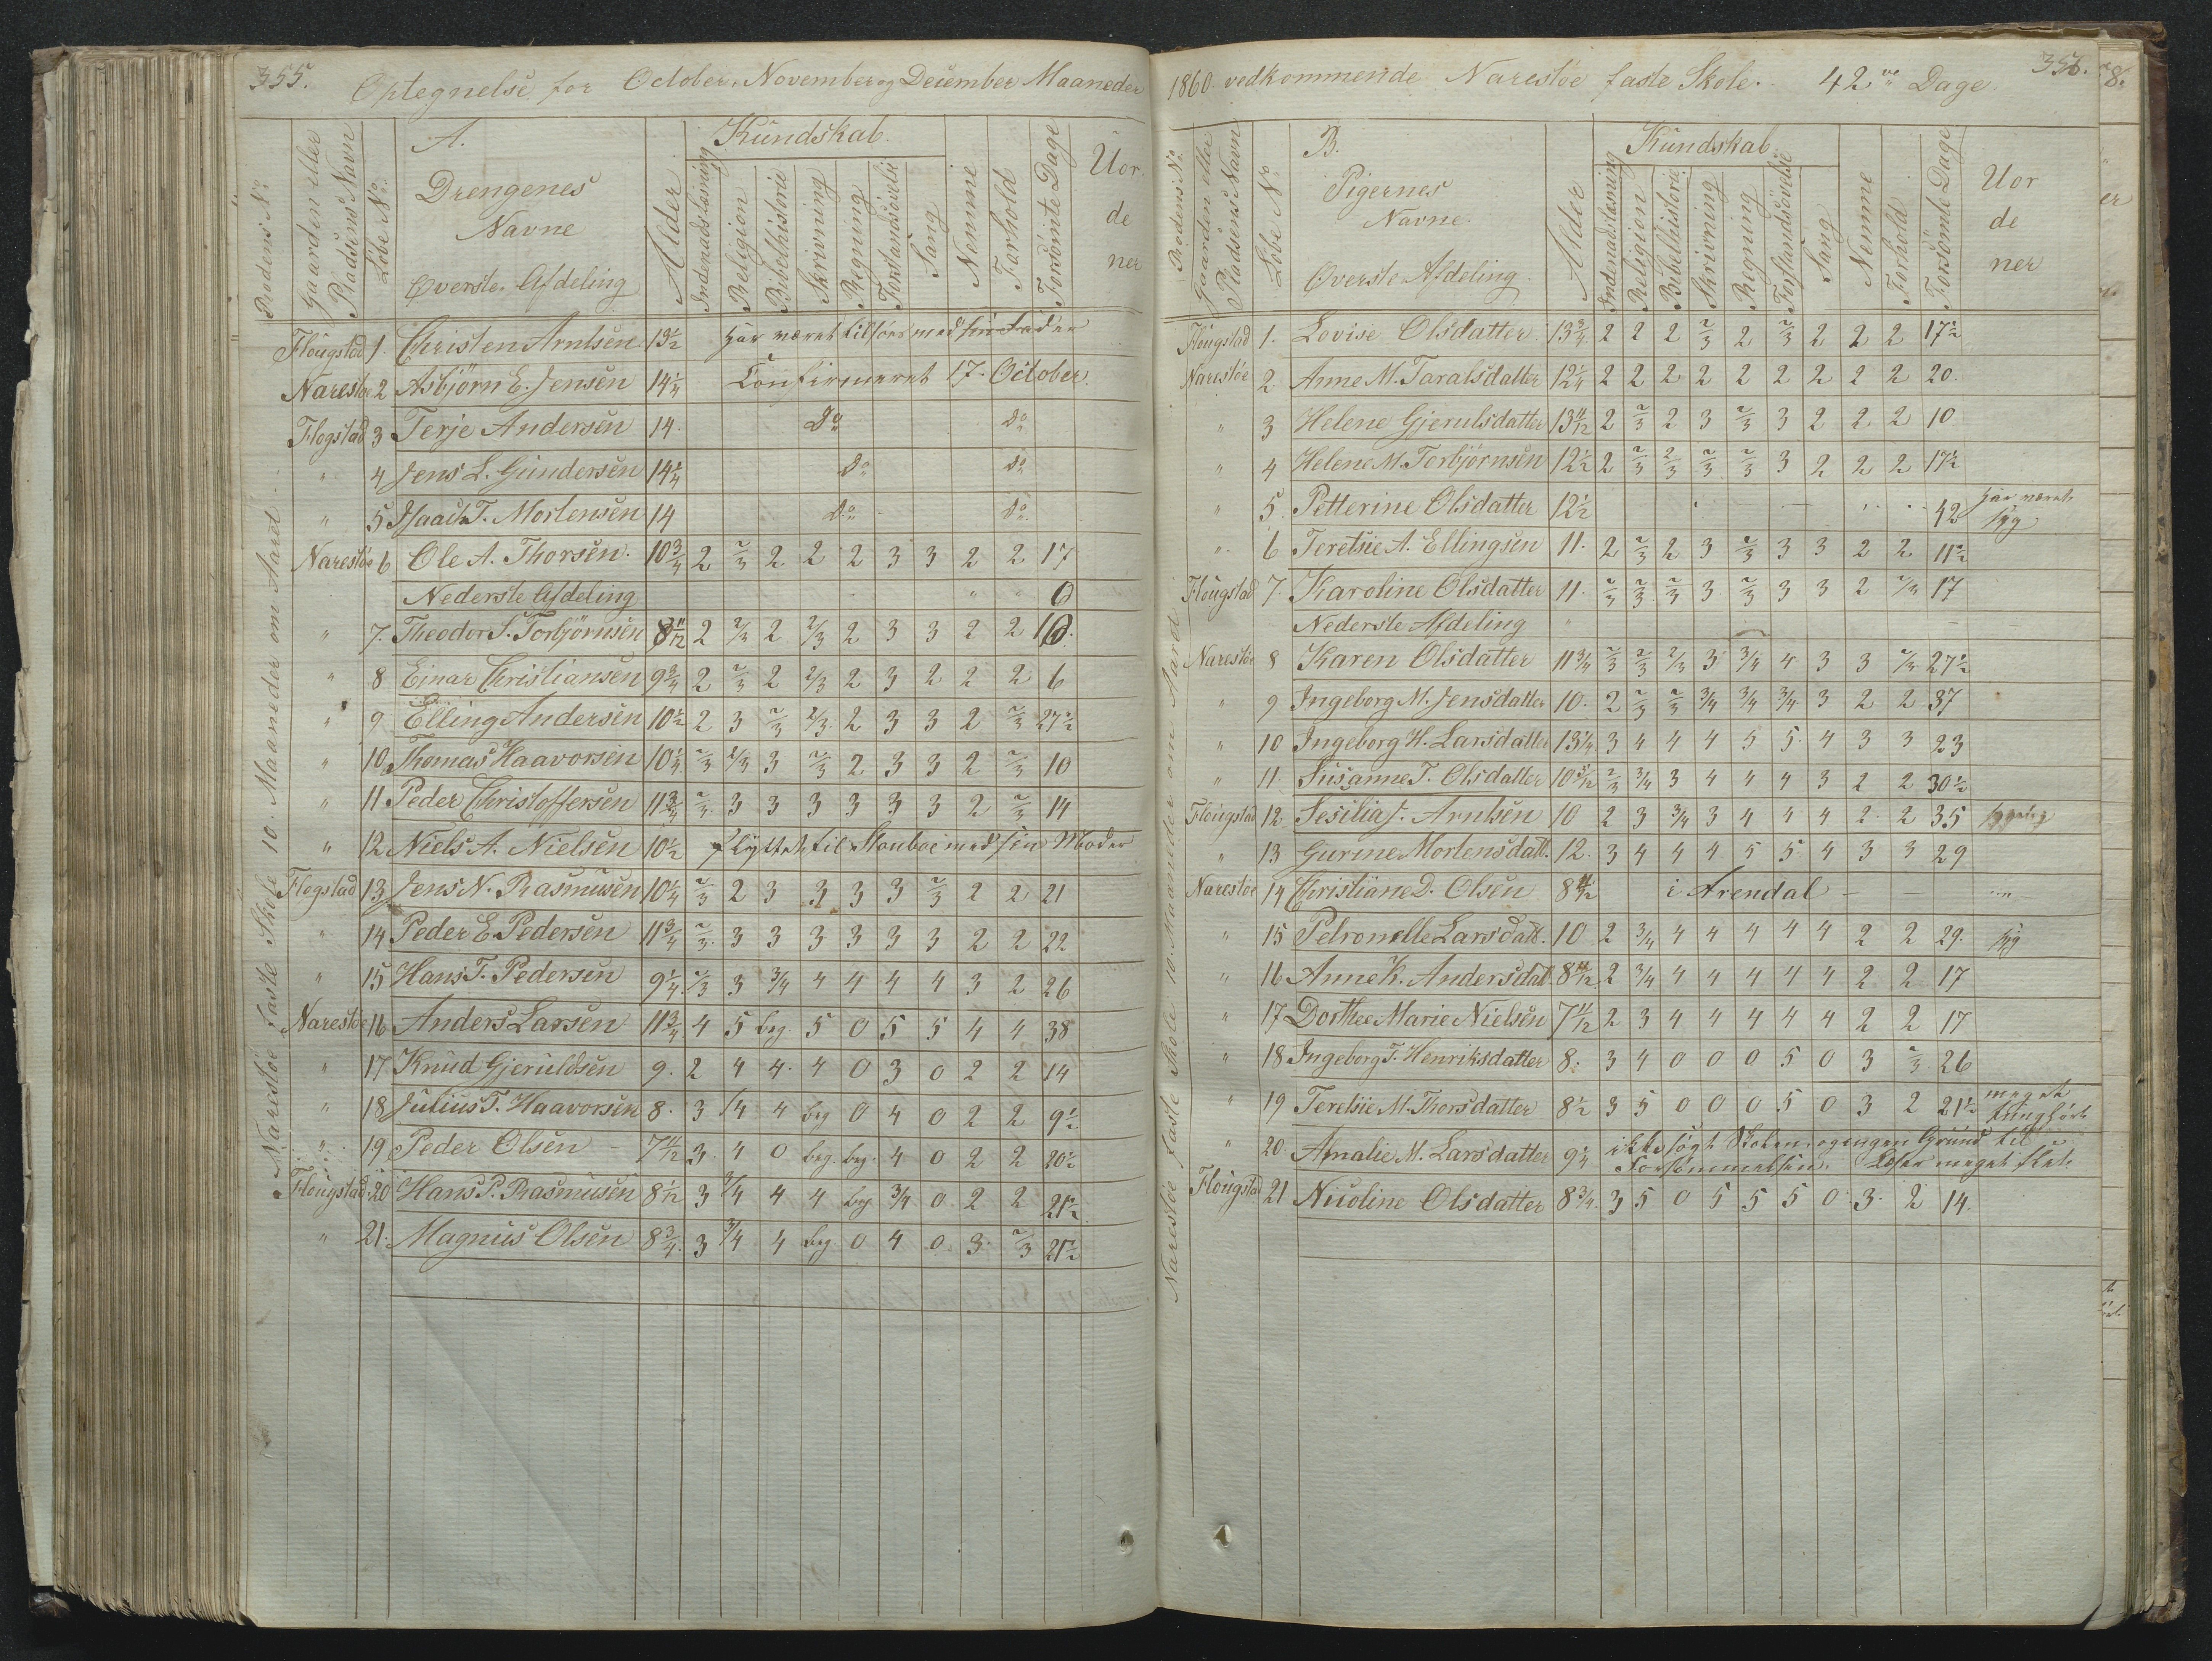 355.
Optegnelse for October, November og December Maaneder
Rodens No.
Gaarden eller Pladsens Navn
Löbe No.
A.
Drengenes
Navne
Øverste Afdeling
Alder
Kundskab
Indenadslæsning
Religion
Bibelhistorie
Skrivning
Regning
Forstandsövelse
Sang
Nemme
Forhold
Forsömte Dage
Uor
de
ner
Flougstad 1. Christen Arntsen 13½ har været tilsöes med sin Fader
Narestöe 2 Asbjörn E. Jensen 14¼ Confirmeret 17. October
Flogstad 3 Terje Andersen 14. Do Do
" 4 Jens L. Gundersen 14¼ Do Do
" 5 Isaach T. Mortensen 14 Do Do
Narestöe 6 Ole A. Thorsen. 10¾ 2 2/3 2 2 2 3 3 2 2 17
Nederste Afdeling 0
" 7. Theodor S. Torbjörnsen 8 11/12 2 2/3 2 2/3 2 3 3 2 2 10.
" 8 Einar Christiansen 9¾ 2 2/3 2 2/3 2 3 2 2 2 6
" 9 Elling Andersen 10½ 2 3 2/3 2/3 2 3 3 2 2/3 27½
" 10. Thomas Haavorsen 10¼ 2/3 2/3 3 2/3 2 3 3 2 2/3 10
" 11 Peder Christoffersen 11¾ 2/3 3 3 3 3 3 3 2 2/3 14
" 12 Niels A. Nielsen 10½ flyttet til Stouboe med sin Moder
Flogstad 13 Jens N. Rasmusen 10¼ 2/3 2 3 3 3 3 2/3 2 2 21
" 14 Peder E. Pedersen 11¾ 2/3 3 3 3 3 3 3 2 2 22
" 15 Hans T. Pedersen 9¼ 2/3 3 3/4 4 4 4 4 3 2 26
Narestöe 16 Anders Larsen 11¾ 4 5 beg. 5 0 5 5 4 4 38
" 17 Knud Gjeruldsen 9. 2 4 4 4 0 3 0 2 2 14
" 18 Julius T. Haavorsen 8. 3 3/4 4 beg 0 4 0 2 2 9½
" 19 Peder Olsen 7 11/12 3 4 0 beg. beg. 4 0 2 2 20½
Flougstad 20 Hans P. Rasmusen 8 1/12 3 3/4 4 4 beg 3/4 0 2 2 21½
" 21. Magnus Olsen 8¾ 3 3/4 4 beg. 0 4 0 3 2/3 21½
Narestöe faste Skole 10. Maaneder om Aaret.
1860. vedkommende Narestöe faste Skole. 42 Dage.
356.
Rodens No.
Gaarden eller Pladsens Navn
Löbe No
B.
Pigernes
Navne.
Øverste Afdeling
Alder
Kundskab.
Indenadslæsning
Religion
Bibelhistorie
Skrivning
Regning
Forstandsövelse
Sang
Nemme
Forhold
Forsömte Dage
Uor
de
ner
Flougstad 1. Lovise Olsdatter 13¾ 2 2 2 2/3 2 2/3 2 2 2 17½
Narestöe 2. Anne M. Taralsdatter 12¼ 2 2 2 2 2 2 2 2 2 20.
" 3 Helene Gjerulsdatter 13 11/12 2 2/3 2 3 2/3 3 2 2 2 10
" 4 Helene M. Torbjörnsen 12½ 2 2/3 2/3 2/3 2/3 3 2 2 2 17½
" 5. Petterine Olsdatter 12½ 42 har været syg
" 6 Teretsie A. Ellingsen 11. 2 2/3 2 3 2/3 3 3 2 2 11½
Flougstad 7. Karoline Olsdatter 11. 2/3 2/3 2/3 3 2/3 3 3 2 2/3 17
Nederste Afdeling
Narestöe 8 Karen Olsdatter 11¾ 2/3 2/3 2/3 3 3/4 4 3 3 2/3 27½
" 9 Ingeborg M. Jensdatter 10. 2 2/3 2/3 3/4 3/4 3/4 3 2 2 37
" 10 Ingeborg H. Larsdatter 13¼ 3 4 4 4 5 5 4 3 3 23
" 11. Susanne T. Olsdatter 10 5/12 2/3 3/4 3 4 4 4 3 2 2 30½
Flougstad 12 Sesilia J. Arntsen 10 2 3 3/4 3 4 4 4 2 2 35 sygelig
" 13 Gurine Mortensdatt. 12. 3 4 4 4 5 5 4 3 3 29
Narestöe 14 Christiane D. Olsen 8 11/12 i Arendal
" 15 Petronelle Larsdatt. 10 2 3/4 4 4 4 4 4 2 2 29. syg
" 16 Anne K. Andersdat. 8 11/12 2 3/4 4 4 4 4 4 2 2 17
" 17 Dorthee Marie Nielsen 7 11/12 2 3 4 4 4 4 4 2 2 17
" 18 Ingeborg T. Henriksdatter 8. 3 4 0 0 0 5 0 3 2/3 26
" 19 Teretsie M. Thorsdatter 8½ 3 5 0 0 0 5 0 3 2 21½ meget tunghört
" 20. Amalie M. Larsdatter 9¼ ikke sögt Skolen, og ingen Grund til Forsömmelsen. Læser meget slet.
Flougstad 21 Nicoline Olsdatter 8¾ 3 5 0 5 5 5 0 3. 2 14.
Narestöe faste Skole 10. Maaneder om Aaret